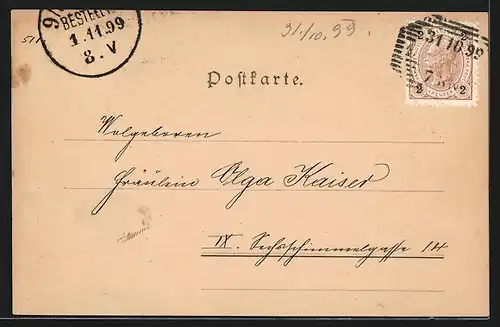 9/
BESTELLT
1.11.99
8.V
31./10.99
31.10.99
7
2 2
Postkarte.
Wolgeboren
Fräulein Olga Kaiser
IX. Sechsschimmelgasse 14